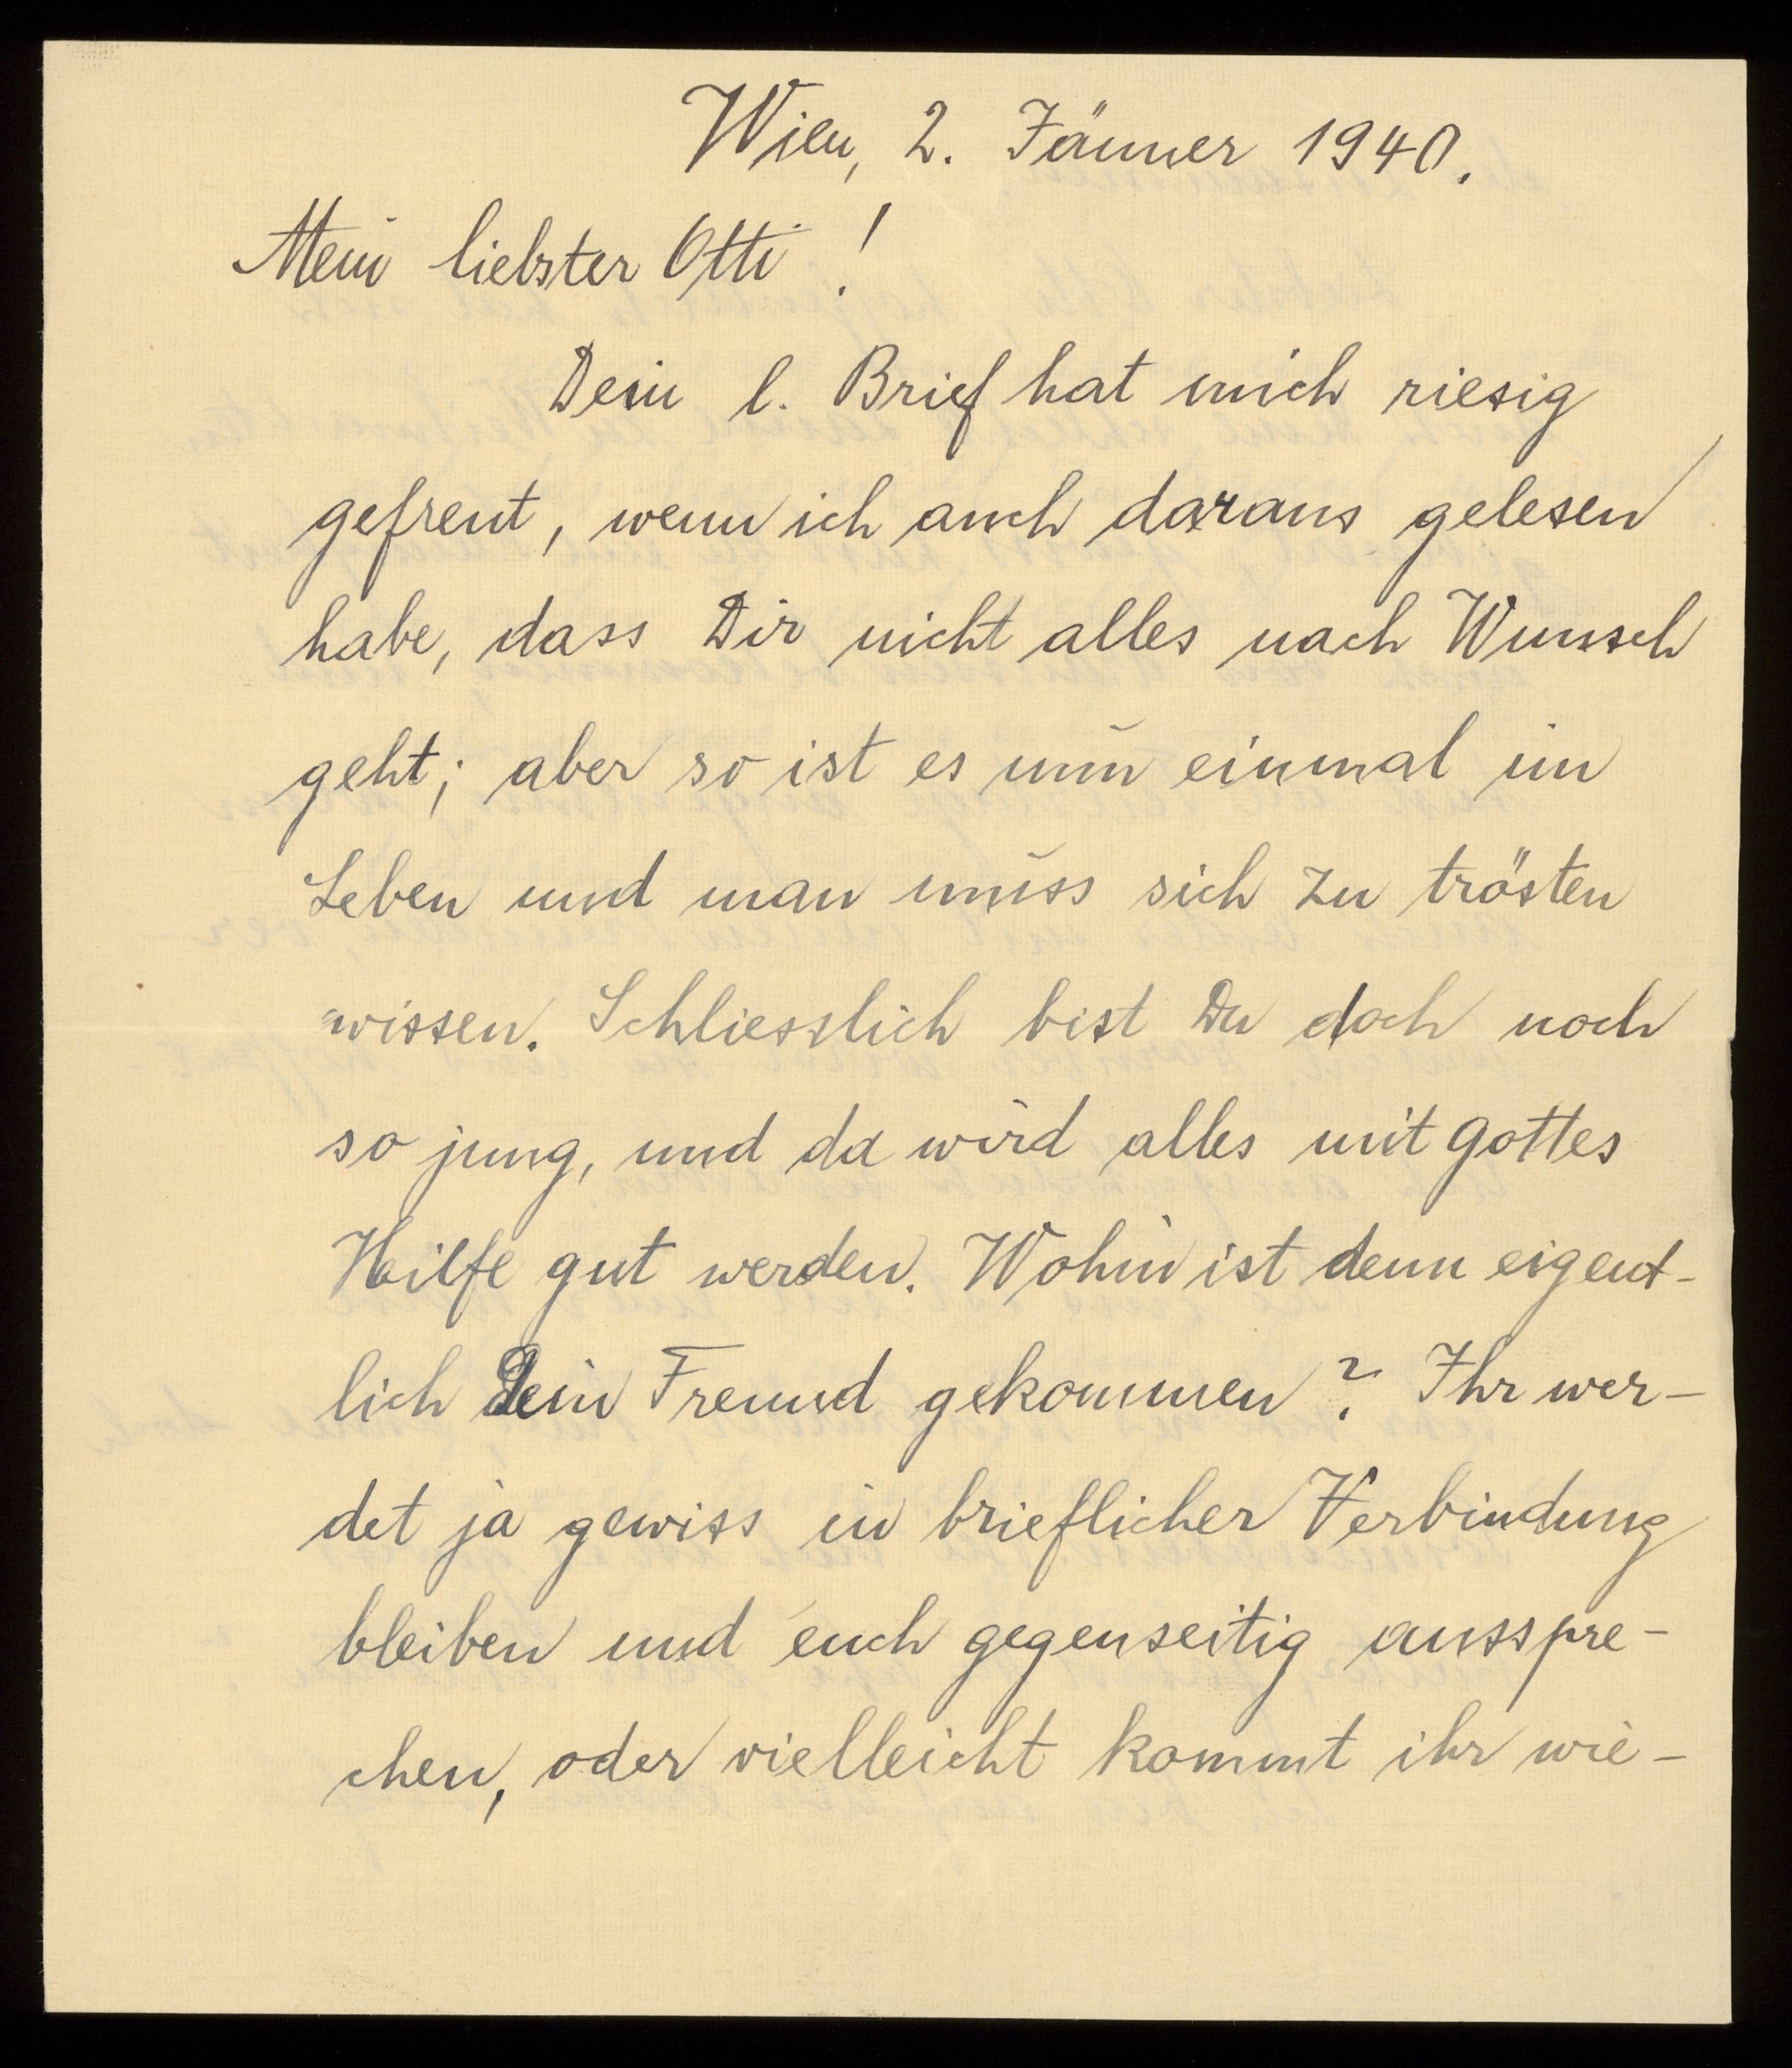 Wien, 2. Jänner 1940.
Mein liebster Otti!
Dein l. Brief hat mich riesig
gefreut, wenn ich auch daraus gelesen
habe, dass Dir nicht alles nach Wunsch
geht; aber so ist es nun einmal im
Leben und man muss sich zu trösten
wissen. Schliesslich bist Du doch noch
so jung, und da wird alles mit Gottes
Hilfe gut werden. Wohin ist denn eigent-
lich Dein Freund gekommen? Ihr wer-
det ja gewiss in brieflicher Verbindung
bleiben und euch gegenseitig ausspre-
chen, oder vielleicht kommt ihr wie-